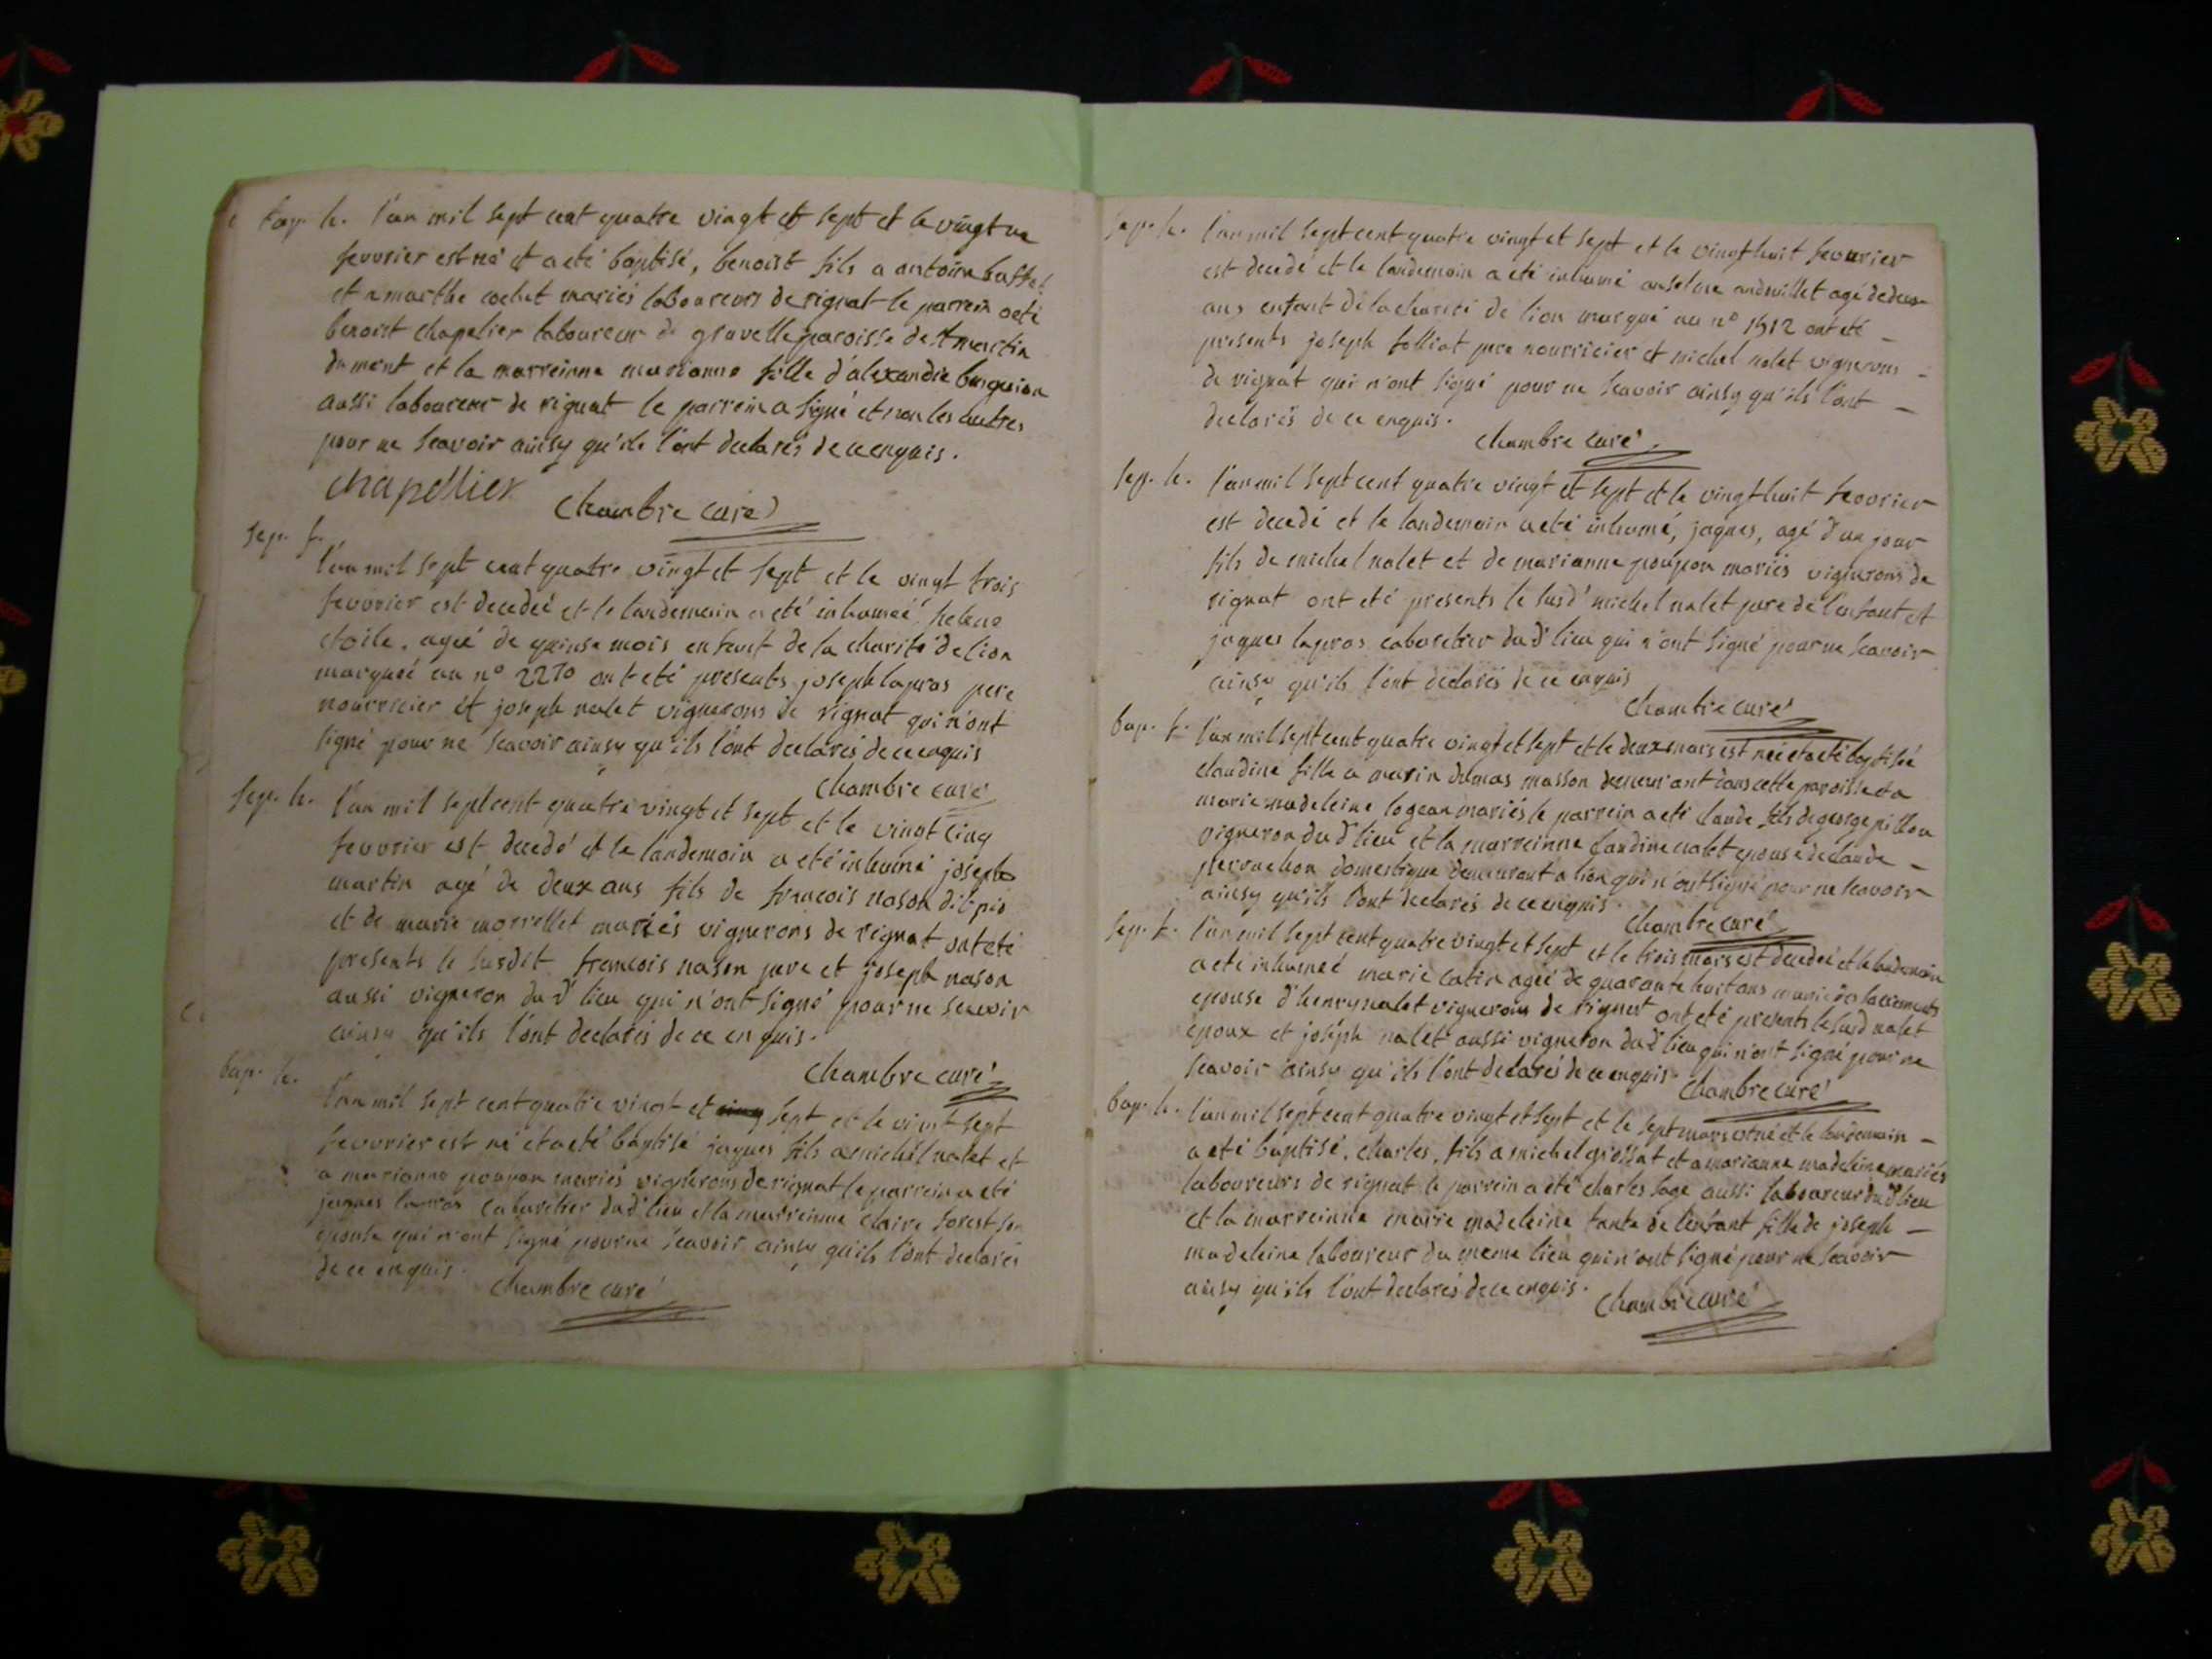 bap. h. l'an mil sept cent quatre vingt et sept et le vingt un
fevvrier est né et a eté baptisé, benoist fils a antoine
et a marthe cochet mariés laboureurs de rignat le parrein a eté
benoist chapelier laboureur de gravelle paroisse de St martin
du mont et la marreinne marianne fille d'alexandre
aussi laboureur de rignat le parrein a signé et non les autres
pour ne scavoir ainsy qu'ils l'ont declarés de ce enquis.
chapellier
Chambre curé
sep. f.
l'an mil sept cent quatre vingt et sept et le vingt trois
fevvrier est decedeé et le landemain a eté inhumeé, helene
etoile, ageé de quinse mois enfant de la charité de lion
marqueé au n° 2270 ont eté presents joseph lapras pere
nourricier et joseph nalet vignerons de rignat qui n'ont
signé pour ne scavoir ainsy qu'ils l'ont declarés de ce enquis
Chambre curé
sep. h. l'an mil sept cent quatre vingt et sept et le vingt cinq
fevvrier est decedé et le landemain a eté inhumé joseph
martin agé de deux ans fils de francois nason dit pio
et de marie morrellet mariés vignerons de rignat ont eté
presents le susdit francois nason pere et joseph nason
aussi vigneron du d' lieu qui n'ont signé pour ne scavoir
ainsy qu'ils l'ont declarés de ce enquis.
Chambre curé
bap. h.
l'an mil sept cent quatre vingt et sept et le vingt sept
fevvrier est né et a eté baptisé jaques fils a michel nalet et
a marianne poupon mariés vignerons de rignat le parrein a eté
jaques lapras cabaretier du d' lieu et la marreinne claire forest son
epouse qui n'ont signé pour ne scavoir ainsy qu'ils l'ont declarés
de ce enquis.
Chambre curé
sep. h. l'an mil sept cent quatre vingt et sept et le vingt huit fevvrier
est decedé et le landemain a eté inhumé anselme andruillet agé de deux
ans enfant de la charité de lion marqué au n° 1912 ont eté
presents joseph folliat pere nourricier et michel nalet vignerons
de rignat qui n'ont signé pour ne scavoir ainsy qu'ils l'ont
declarés de ce enquis.
Chambre curé
sep. h. l'an mil sept cent quatre vingt et sept et le vingt huit fevvrier
est decedé et le landemain a eté inhumé, jaques, agé d'un jour
fils de michel nalet et de marianne poupon mariés vignerons de
rignat ont eté presents le susd' michel nalet pere de l'enfant et
jaques lapras cabaretier du d' lieu qui n'ont signé pour ne scavoir
ainsy qu'ils l'ont declarés de ce enquis
Chambre curé
bap. f. l'an mil sept cent quatre vingt et sept et le deux mars est neé et a eté baptiseé
claudine fille a marin dumas masson demeurant dans cette paroisse et a
marie madeleine logean mariés le parrein a eté claude fils de george pillon
vigneron du d' lieu et la marreinne claudine nalet epouse de claude
perrachon domestique demeurant a lion qui n'ont signé pour ne scavoir
ainsy qu'ils l'ont declarés de ce enquis.
Chambre curé
sep. f. l'an mil sept cent quatre vingt et sept et le trois mars est decedeé et le landemain
a eté inhumeé marie catin ageé de quarante huit ans munie des sacrements
epouse d'henry nalet vignerons de rignat ont eté presents le susd nalet
epoux et joseph nalet aussi vigneron du d' lieu qui n'ont signé pour ne
scavoir ainsy qu'ils l'ont declarés de ce enquis.
Chambre curé
bap. h. l'an mil sept cent quatre vingt et sept et le sept mars est né et le landemain
a eté baptisé, charles, fils a michel grossat et a marianne madeleine mariés
laboureurs de rignat le parrein a eté charles sage aussi laboureur du d' lieu
et la marreinne marie madeleine tante de l'enfant fille de joseph
madeleine laboureur du meme lieu qui n'ont signé pour ne scavoir
ainsy qu'ils l'ont declarés de ce enquis.
Chambre curé